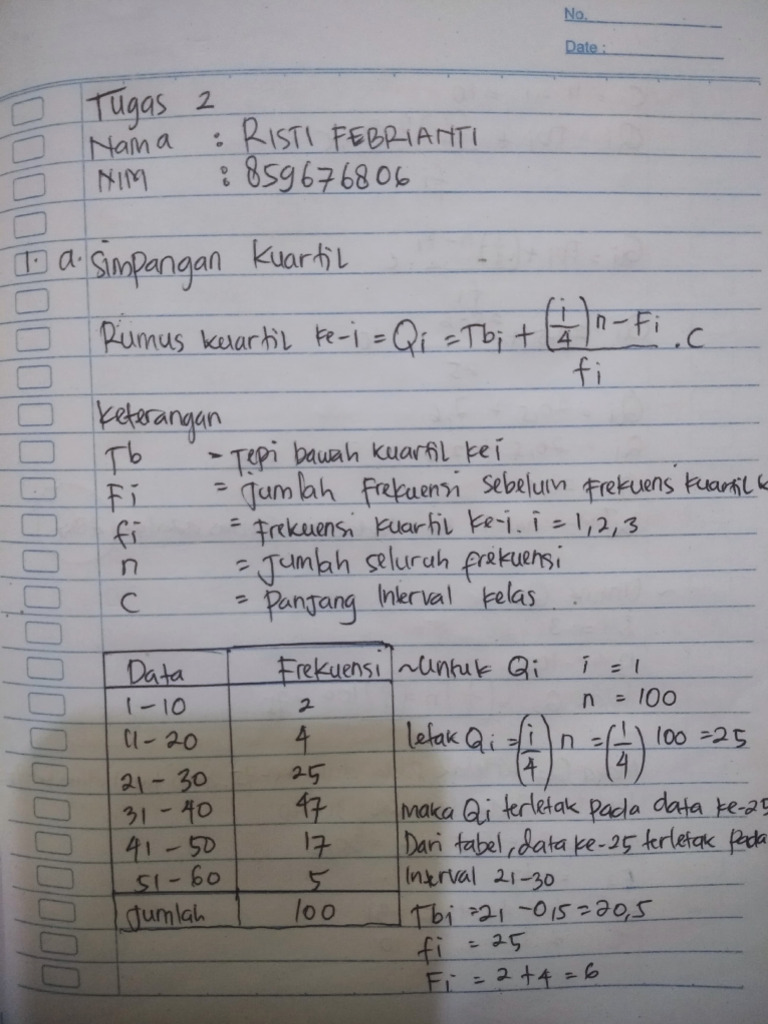 No.
Date :
Tugas 2
Nama : RISTI FEBRIANTI
NIM : 859676806
1. a. Simpangan Kuartil
Rumus kuartil ke-i = Qi = Tbi + (i/4) n - Fi / fi . C
Keterangan
Tb = Tepi bawah kuartil ke i
Fi = Jumlah frekuensi sebelum frekuens kuartil k
fi = Frekuensi kuartil ke-i. i = 1, 2, 3
n = Jumlah seluruh frekuensi
C = Panjang Interval kelas
Data Frekuensi ~Untuk Qi i = 1
1-10 2 n = 100
11-20 4 letak Qi = (i/4) n = (1/4) 100 = 25
21-30 25
31-40 47 maka Qi terletak pada data ke-25
41-50 17 Dari tabel, data ke-25 terletak pada
51-60 5 Interval 21-30
Jumlah 100 Tbi = 21 - 0,5 = 20,5
fi = 25
Fi = 2 + 4 = 6